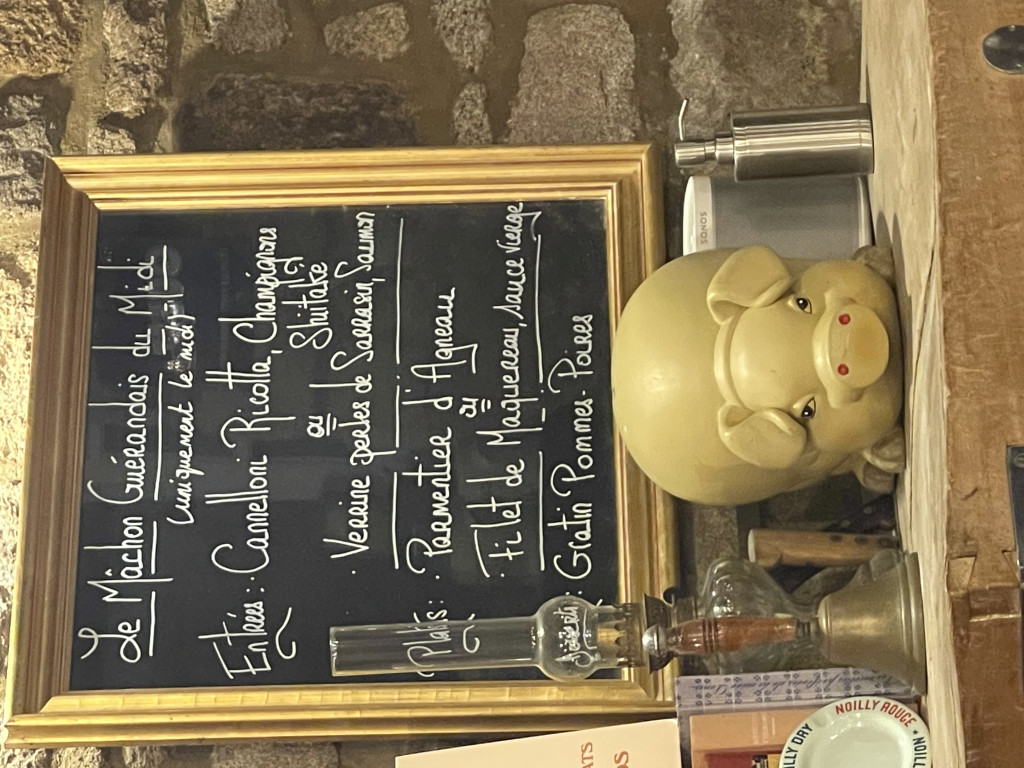 Le Mâchon Guérandais du Midi
(uniquement le midi)
Entrées: Cannelloni Ricotta, Champignons
Shiitaké
ou
· Verrine perles de Sarrasin, Saumon
Plats: · Parmentier d'Agneau
ou
· Filet de Maquereau, sauce Vierge
Desserts: Gratin Pommes-Poires
SONOS
NOILLY ROUGE